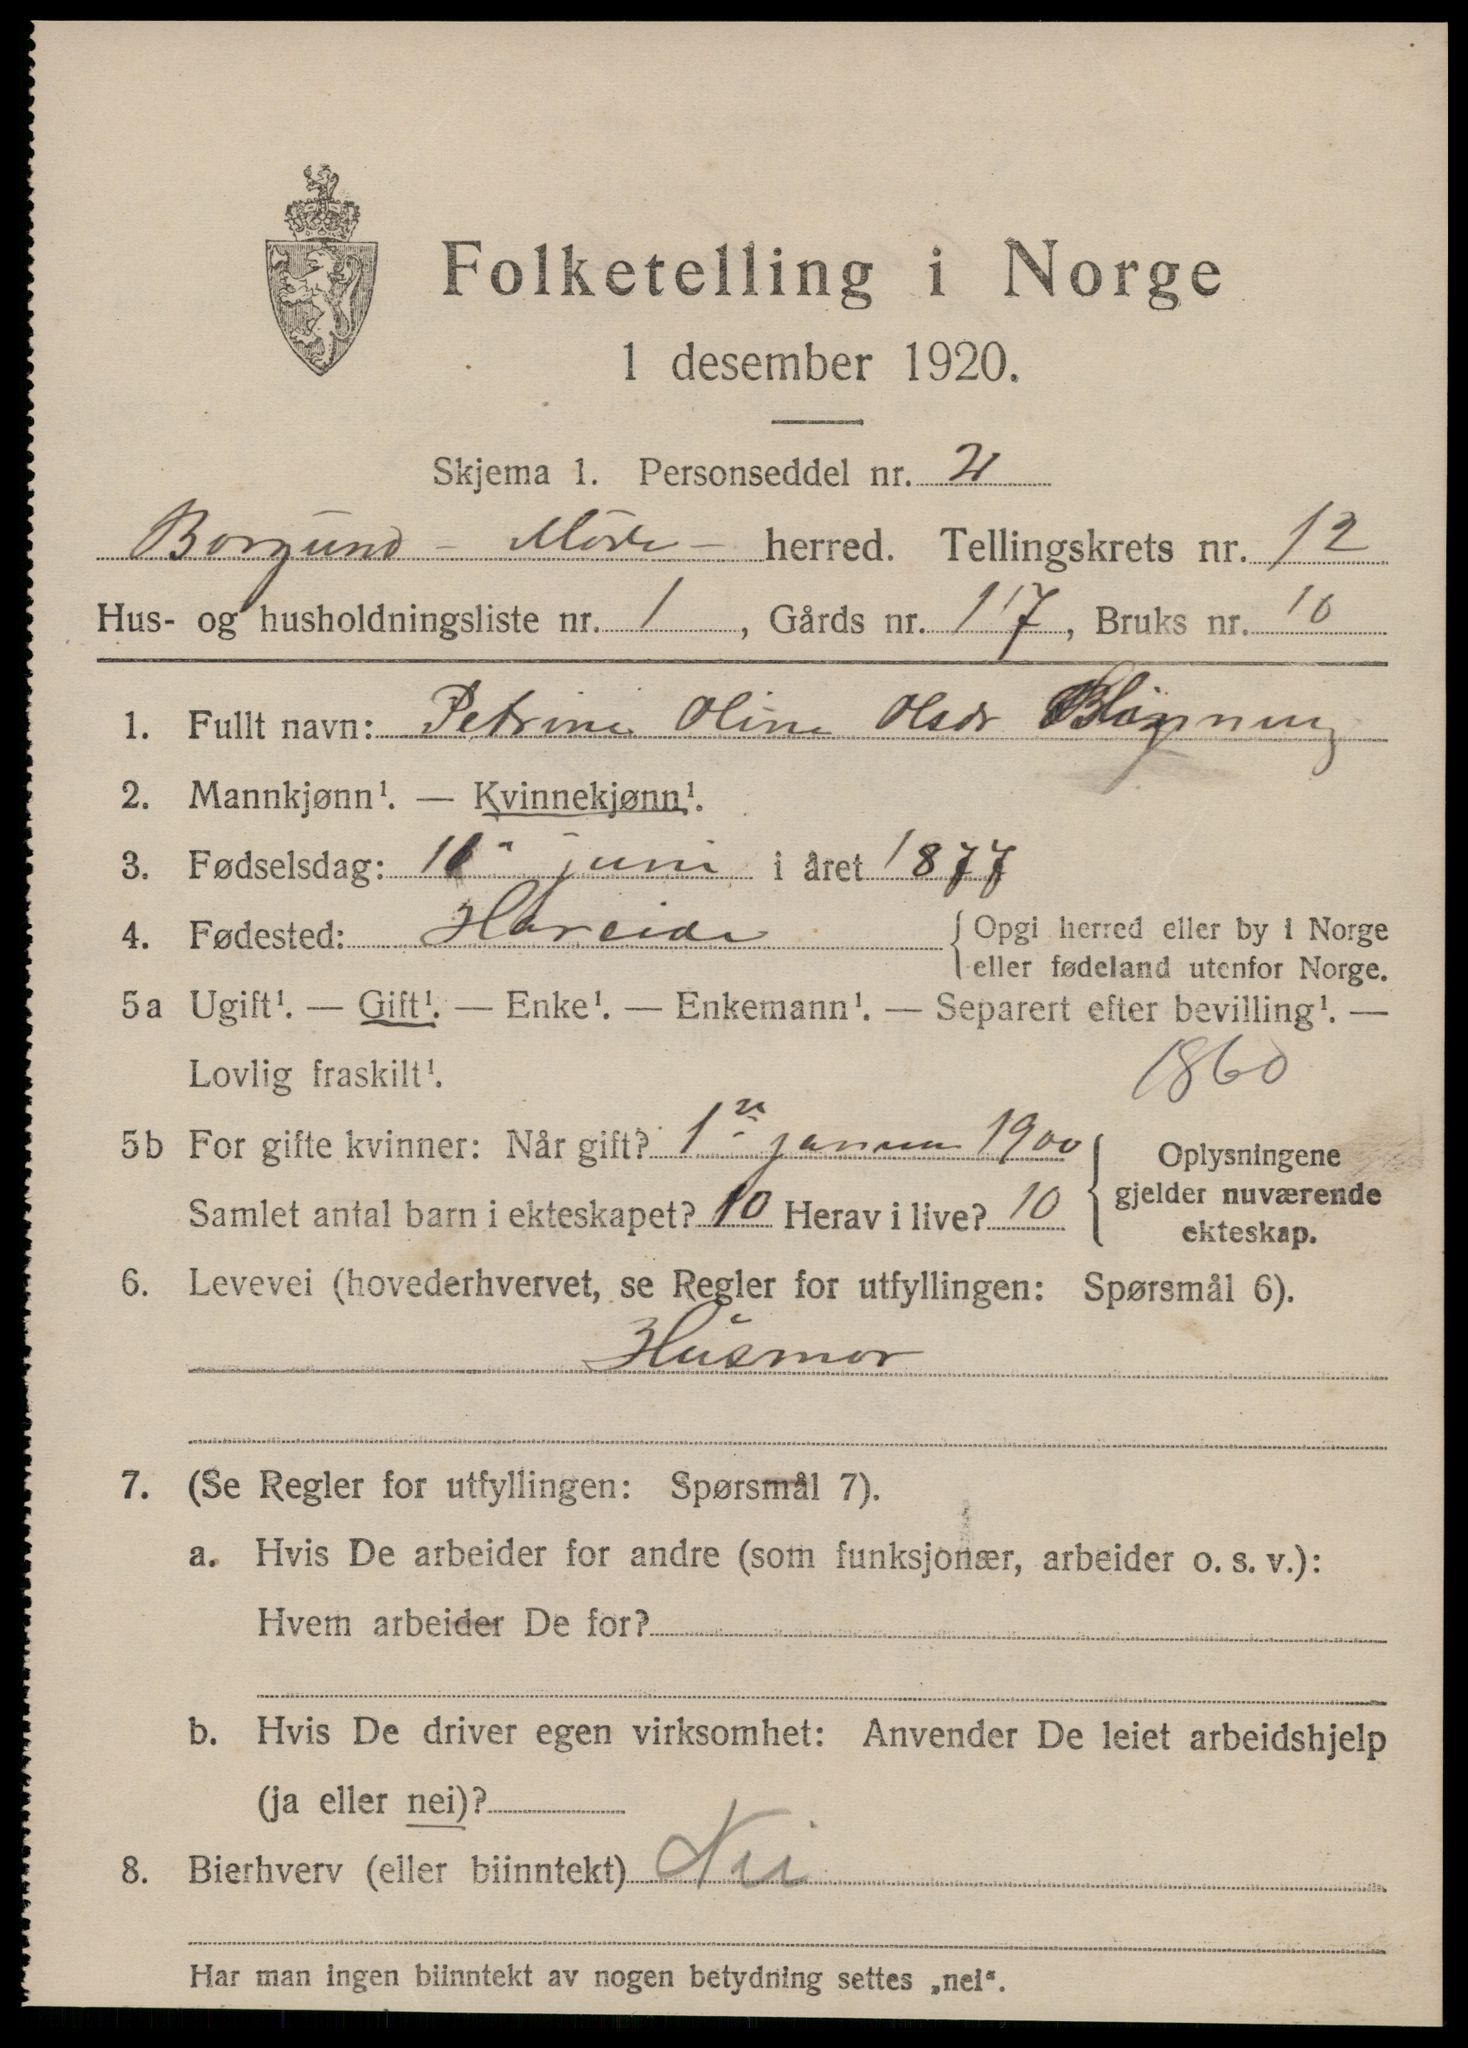 Folketelling i Norge
1 desember 1920.
Skjema 1. Personseddel nr. 2
Borgund - Møre - herred. Tellingskrets nr. 12
Hus- og husholdningsliste nr. 1, Gårds nr. 117, Bruks nr. 10
1. Fullt navn: Petrine Oline Olsdr
2. Mannkjønn¹. — Kvinnekjønn¹.
3. Fødselsdag: juni i året 1877
4. Fødested: Hareide { Opgi herred eller by i Norge
eller fødeland utenfor Norge.
5a Ugift¹. — Gift¹. — Enke¹. — Enkemann¹. — Separert efter bevilling¹. —
Lovlig fraskilt¹. 1860
5b For gifte kvinner: Når gift? 1 januar 1900 { Oplysningene
Samlet antal barn i ekteskapet? 10 Herav i live? 10 gjelder nuværende
ekteskap.
6. Levevei (hovederhvervet, se Regler for utfyllingen: Spørsmål 6).
Husmor
7. (Se Regler for utfyllingen: Spørsmål 7).
a. Hvis De arbeider for andre (som funksjonær, arbeider o. s. v.):
Hvem arbeider De for?
b. Hvis De driver egen virksomhet: Anvender De leiet arbeidshjelp
(ja eller nei)?
8. Bierhverv (eller biinntekt) Nei
Har man ingen biinntekt av nogen betydning settes „nei“.